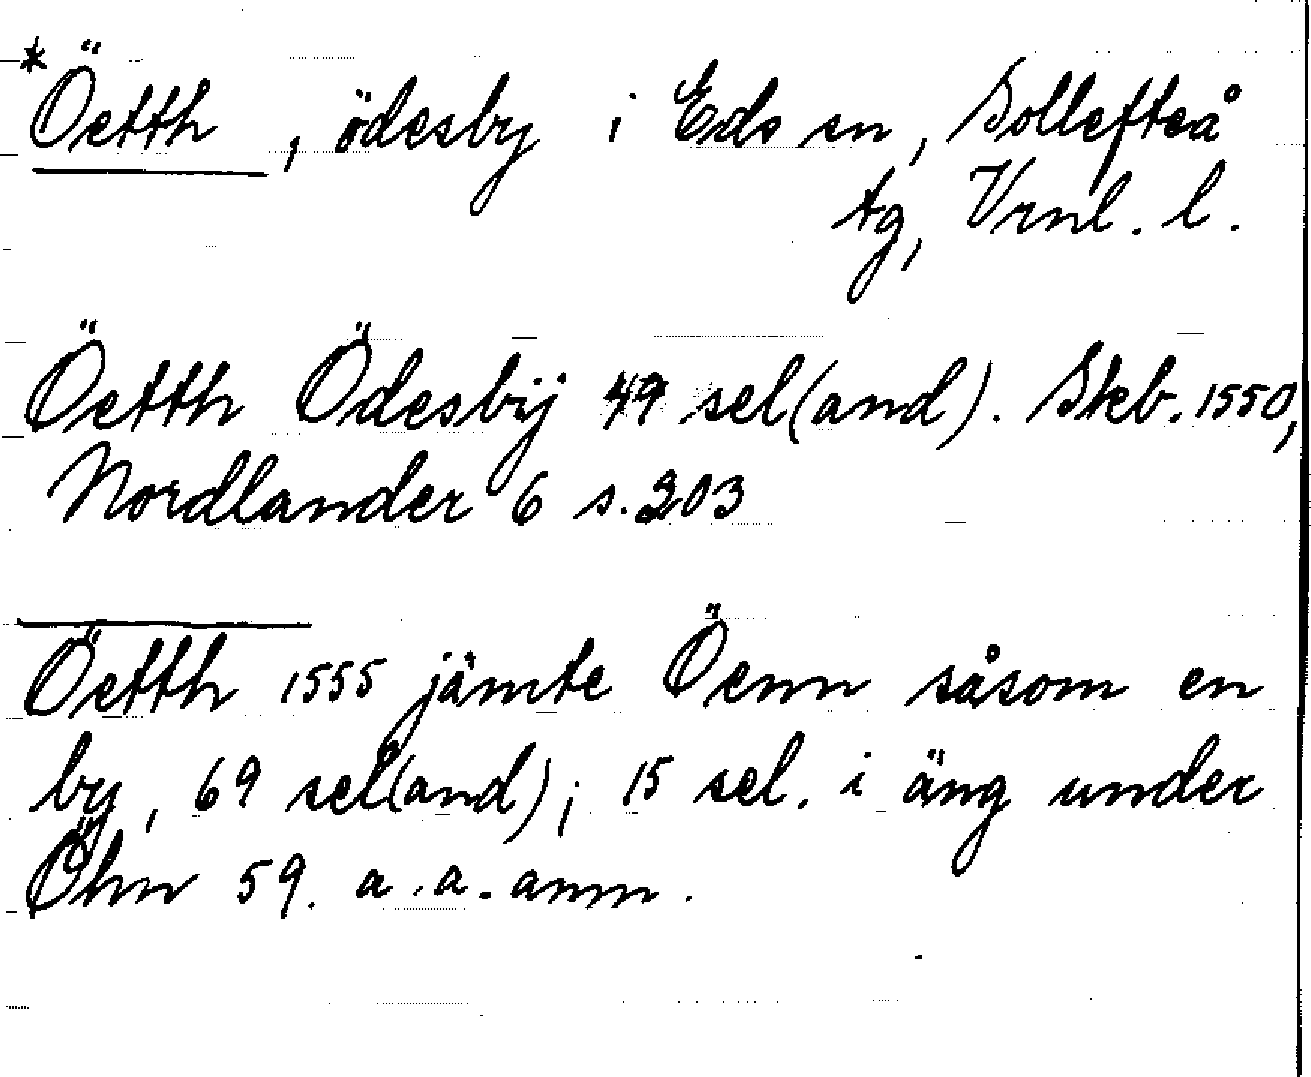 *Öetth, ödesby i Eds sn, Sollefteå
tg, Vrnl. l.
Öetth Ödesbÿ 49 sel(and). Skb. 1550,
Nordlander 6 s. 203
Öetth 1555 jämte Öenn såsom en
by, 69 sel(and); 15 sel. i äng under
Öhn 59. a. a. anm.